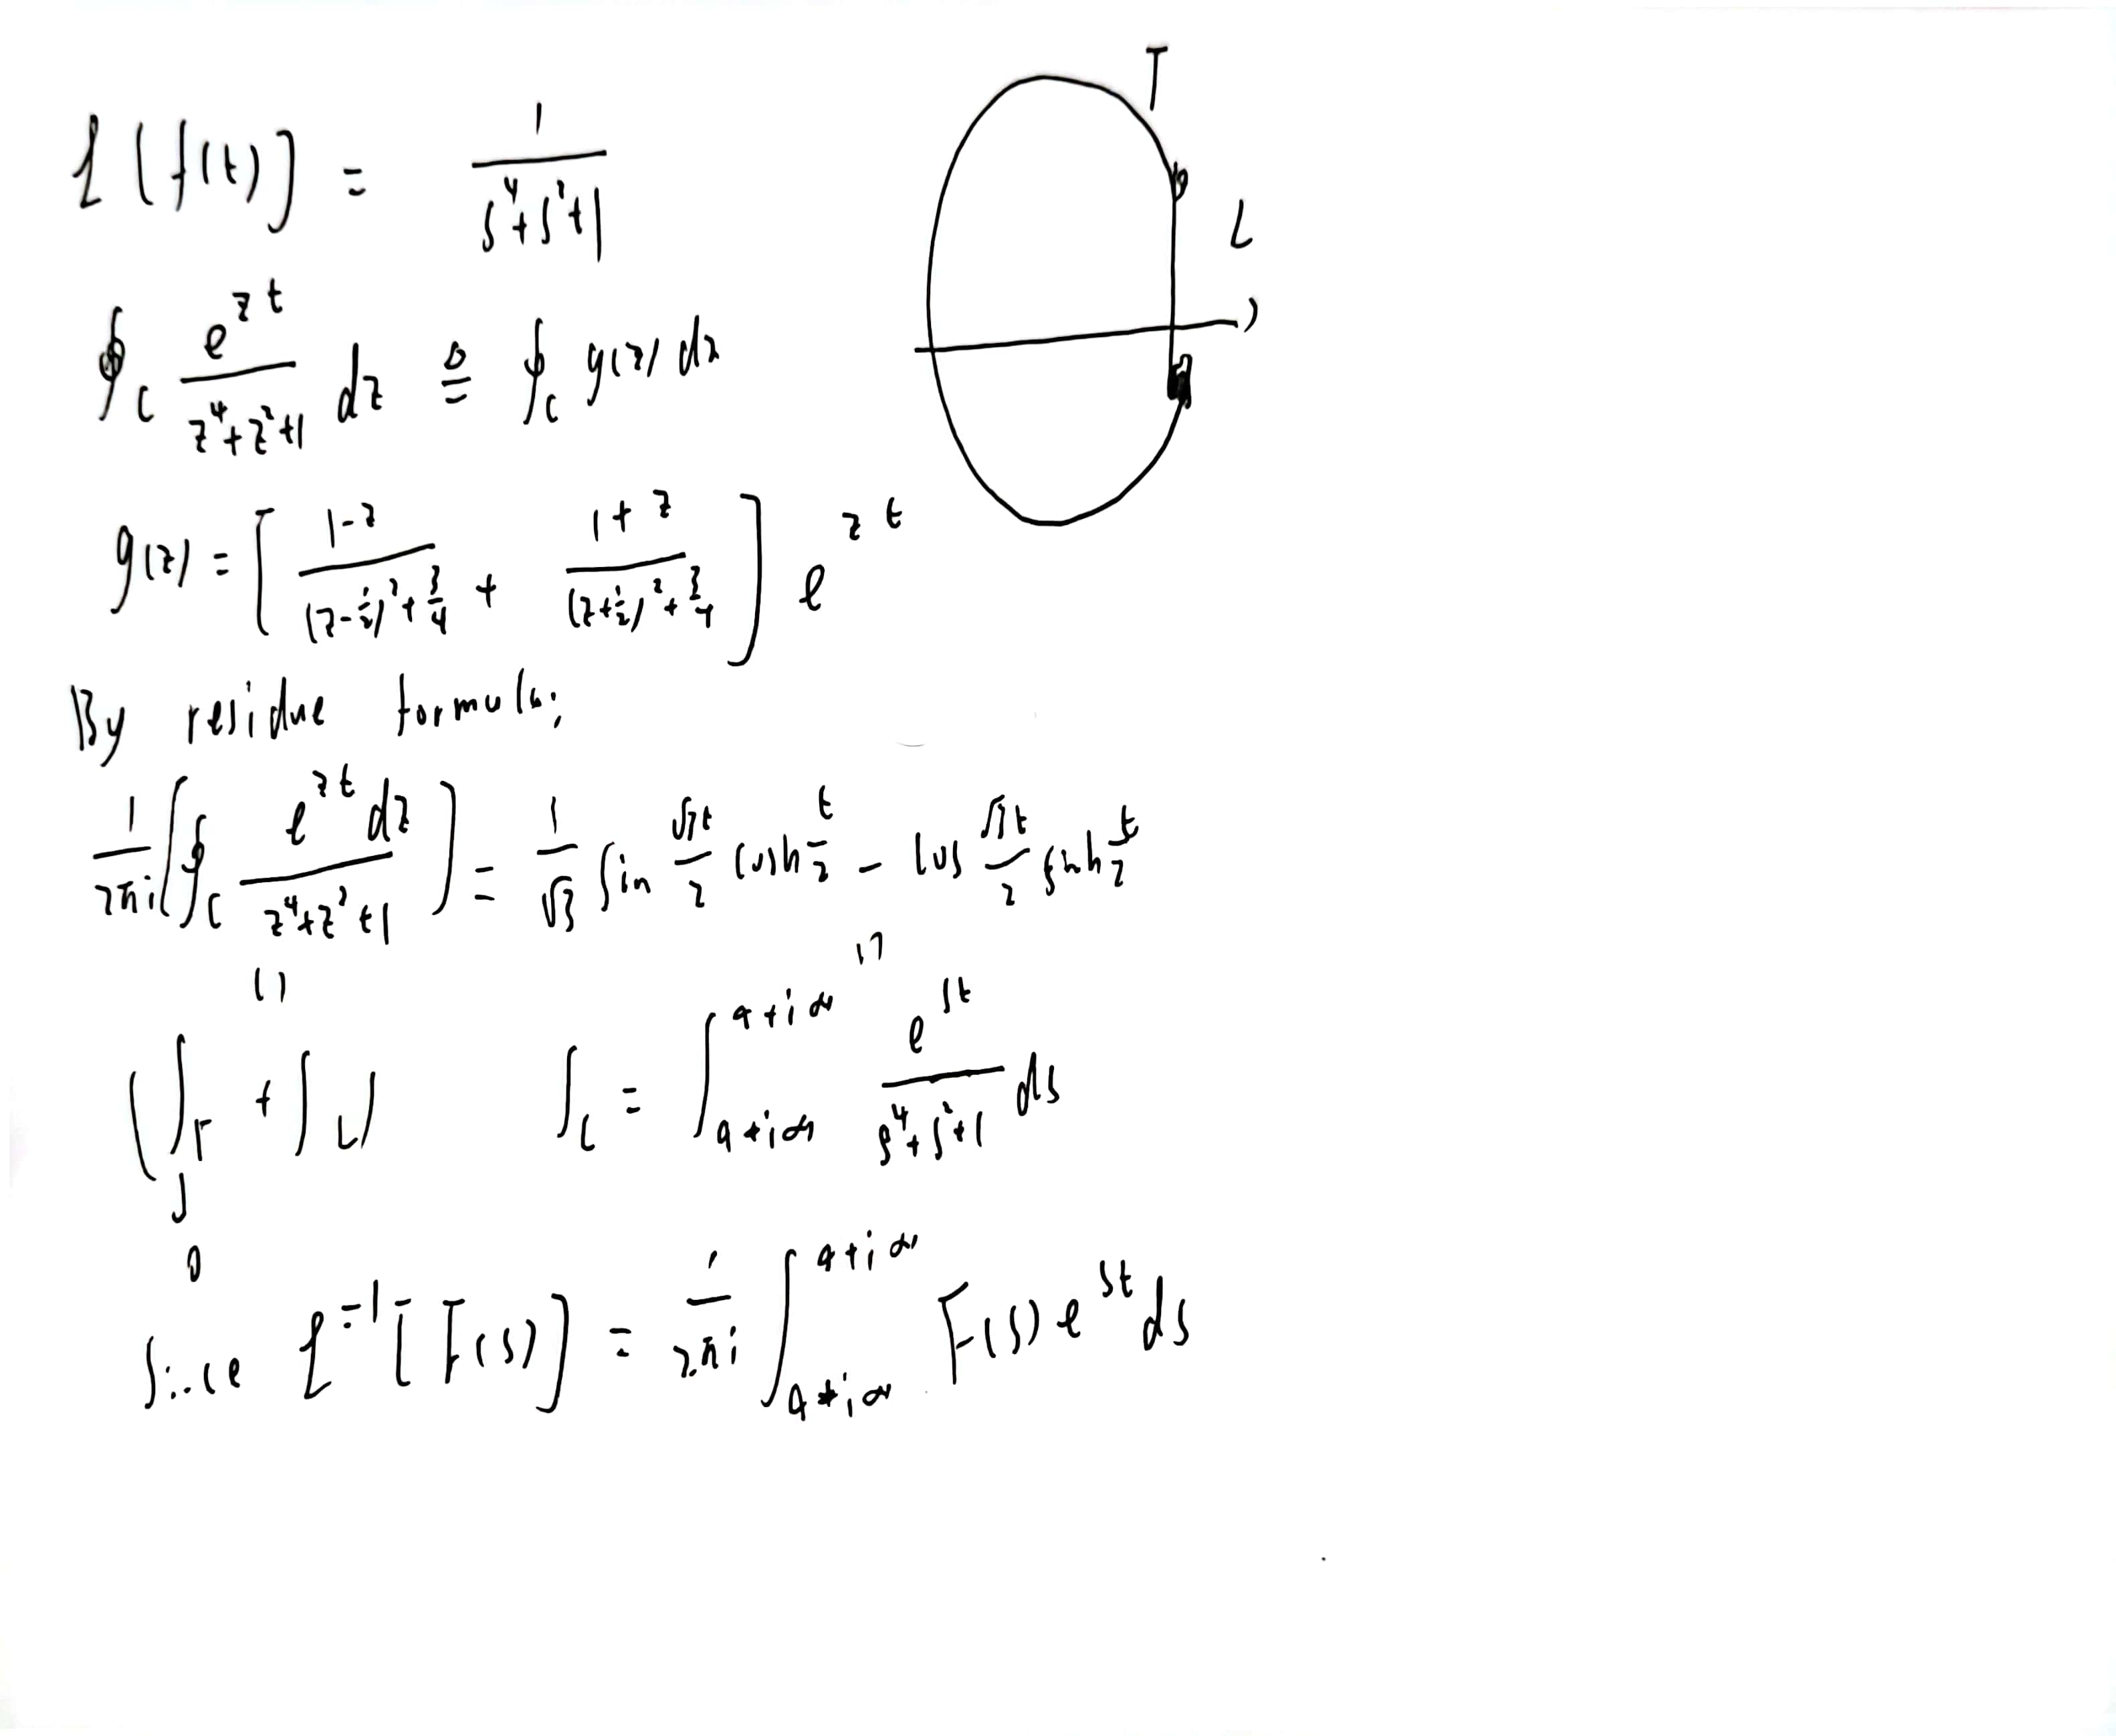 ℒ[f(t)] = 1/(s⁴+s²+1)
Γ
L
∮_C e^{zt}/(z⁴+z²+1) dz ≜ ∮_C g(z) dz
g(z) = [ (1-z)/((z-½)²+¾) + (1+z)/((z+½)²+¾) ] e^{zt}
By residue formula;
1/(2πi) [ ∮_C e^{zt} dz/(z⁴+z²+1) ] = 1/√3 sin √3t/2 cosh t/2 - cos √3t/2 sinh t/2
(∫_Γ + ∫_L) ∫_L = ∫_{a+i∞}^{a+i∞} e^{st}/(s⁴+s²+1) ds
0
Since ℒ⁻¹[F(s)] = 1/(2πi) ∫_{a+i∞}^{a+i∞} F(s) e^{st} ds